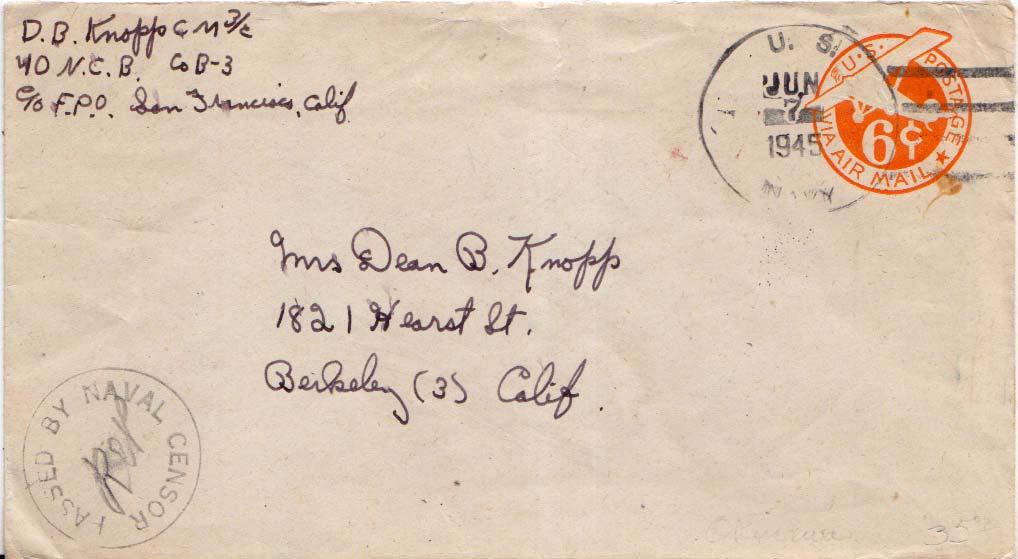 D. B. Knopp CM 3/c
40 N.C.B. Co B-3
c/o F.P.O. San Francisco, Calif
U. S.
JUN
7
1945
NAVY
U. S. POSTAGE
6¢
VIA AIR MAIL
Mrs Dean B. Knopp
1821 Hearst St.
Berkeley (3) Calif.
PASSED BY NAVAL CENSOR
35